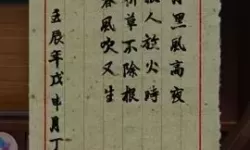 月黑風高夜
殺人放火時
斬草不除根
春風吹又生
壬辰年戊申月丁